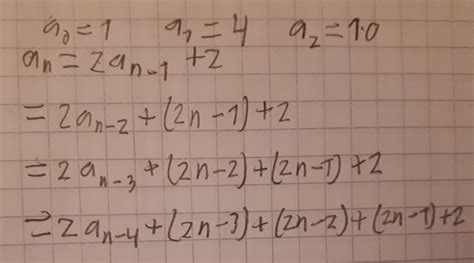 a₀=1 a₁=4 a₂=1.0
aₙ=2aₙ₋₁+2
=2aₙ₋₂+(2n-1)+2
=2aₙ₋₃+(2n-2)+(2n-1)+2
=2aₙ₋₄+(2n-3)+(2n-2)+(2n-1)+2